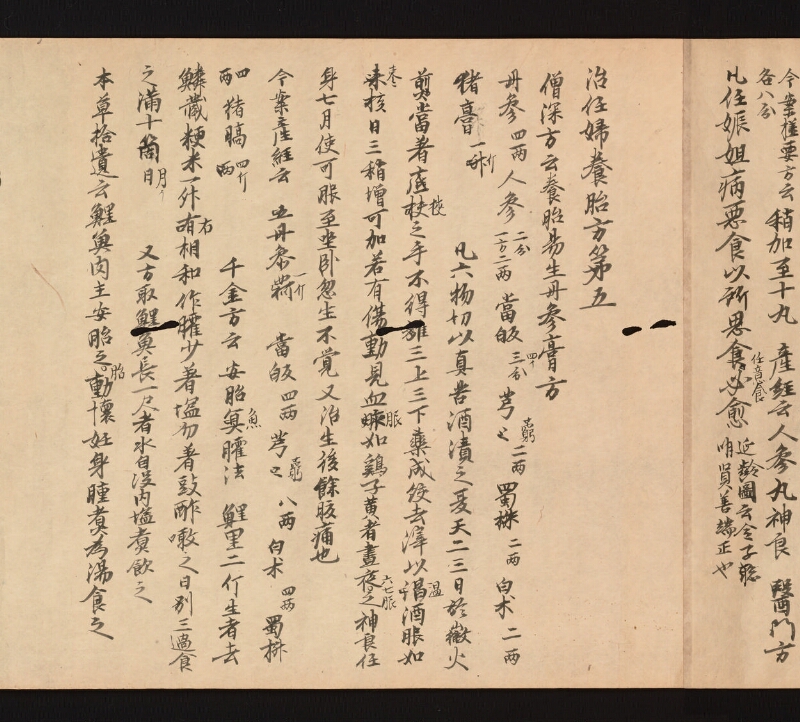 今案極要方云稍加至十丸 產經云人參丸神良 醫門方
各八分
凡任娠妲病惡食以所思食必愈 延齡圖云令子聡
明賢善端正也
任音食
治任婦養胎方第五
僧深方云養胎易生丹參膏方
丹參四兩 人參二分一方二兩 當皈四十三分 芎〻二兩 蜀椒二兩 白术二兩
猪膏一斤 凡六物切以真苦酒漬之夏天二三日於微火
煎當著底絞之手不得離三上三下藥成絞去滓以溫酒服如
棗核日三稍增可加若有傷動見血服如鷄子黃者晝夜六七服之神良任
身七月便可服至坐卧忽生不覺又治生後餘腹痛也
今案產經云 丹參一斤 當皈四兩 芎〻八兩 白术四兩 蜀椒
四兩 猪膏四斤 千金方云安胎魚臛法 鯉里二斤生者去
鱗蔵粳米一升右有相和作臛少著塩勿著豉酢噉之日別三過食
之滿十月 又方取鯉魚長一尺者水自沒內塩煮飲之
本草拾遺云鯉魚肉主安胎之胎動懷妊身腫煮為湯食之